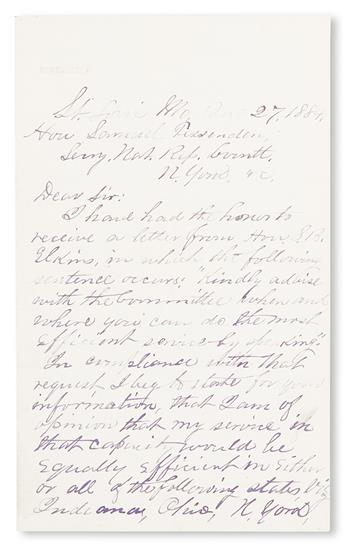 St. Louis Mo. Aug 27, 1884.
Hon Samuel Fessenden,
Secy. Nat. Rep. Comtt.
N. York, &c.
Dear Sir:
I have had the honor to
receive a letter from Hon. S. B.
Elkins, in which the following
sentence occurs; "Kindly advise
with the Committee when and
where you can do the most
efficient service by speaking."
In compliance with that
request I beg to state for your
information, that I am of
opinion that my service in
that capacity would be
equally efficient in either
or all of the following states Viz
Indiana, Ohio, N. York,